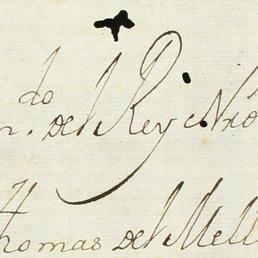 n.do del Rey Nro
Thomas del Mell